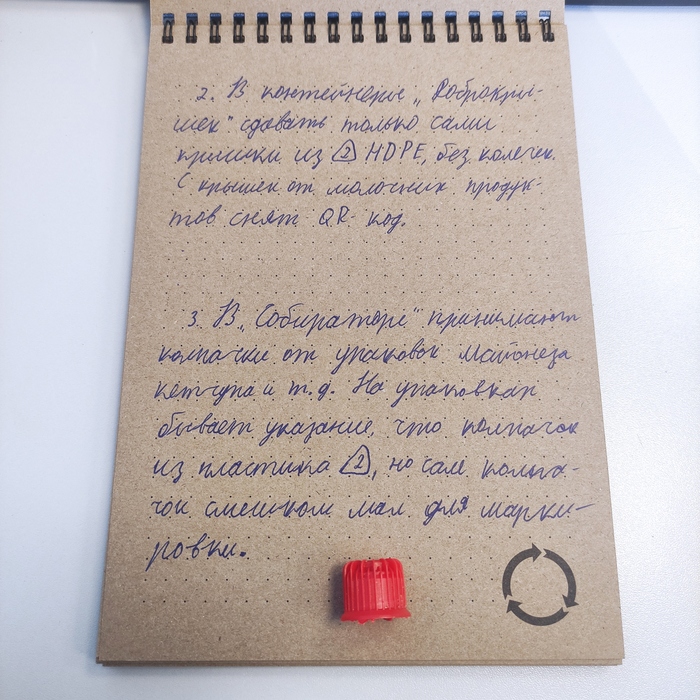 2. В контейнеры „Доброкры-
шек" сдавать только сами
крышки из 2 HDPE, без колечек.
С крышек от молочных продук-
тов снят QR-код.
3. В „Собираторе" принимают
колпачки от упаковок майонеза
кетчупа и т.д. На упаковках
бывает указание, что колпачок
из пластика 2, но сам колпа-
чок слишком мал для марки-
ровки.